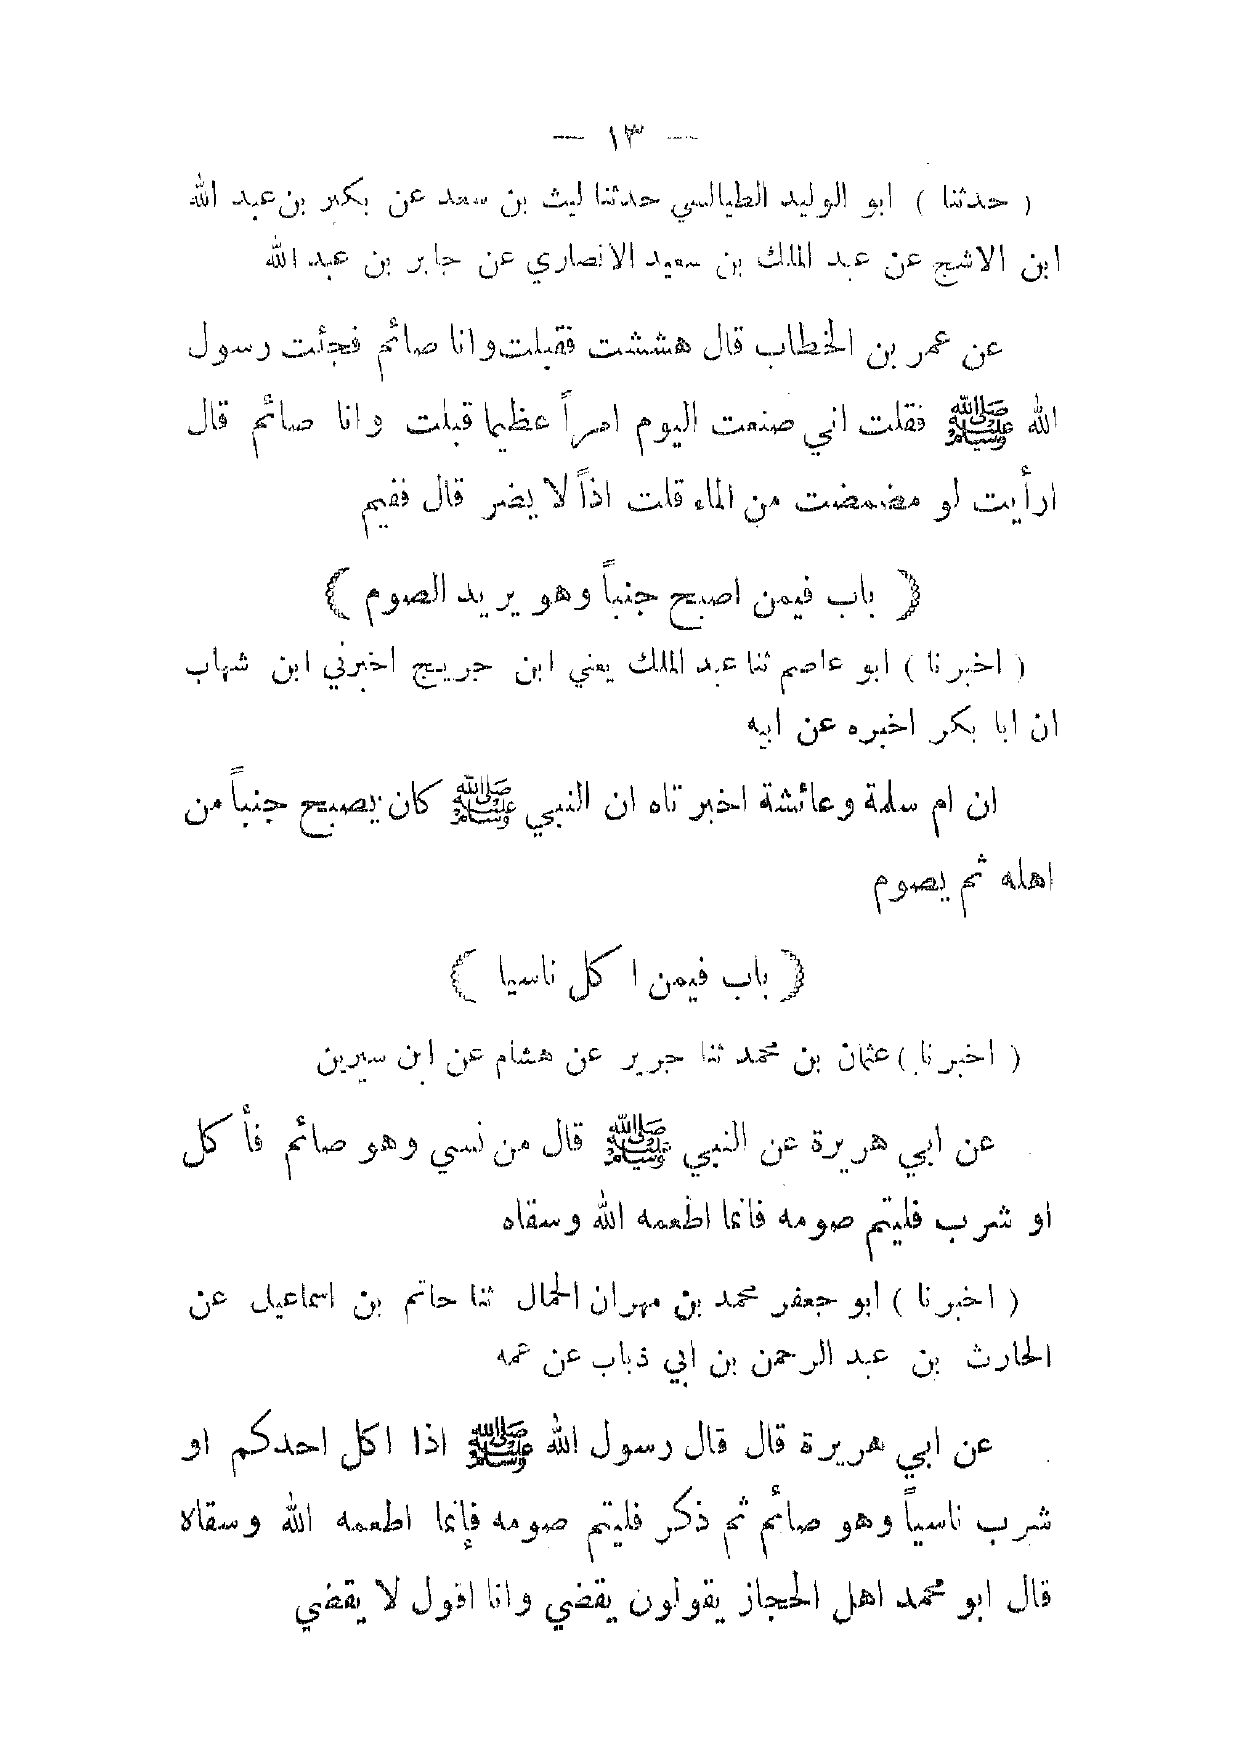 — ١٣ —
( حدثنا ) ابو الوليد الطيالسي حدثنا ليث بن سعد عن بكير بن عبد الله
ابن الاشج عن عبد الملك بن سعيد الانصاري عن جابر بن عبد الله
عن عمر بن الخطاب قال هششت فقبلت وانا صائم فجئت رسول
الله ﷺ فقلت اني صنعت اليوم امراً عظيما قبلت وانا صائم قال
ارأيت لو مضمضت من الماء قلت اذاً لا يضر قال ففيم
﴿ باب فيمن اصبح جنباً وهو يريد الصوم ﴾
( اخبرنا ) ابو عاصم ثنا عبد الملك يعني ابن جريج اخبرني ابن شهاب
ان ابا بكر اخبره عن ابيه
ان ام سلمة وعائشة اخبرتاه ان النبي ﷺ كان يصبح جنباً من
اهله ثم يصوم
﴿ باب فيمن اكل ناسيا ﴾
( اخبرنا ) عثمان بن محمد ثنا جرير عن هشام عن ابن سيرين
عن ابي هريرة عن النبي ﷺ قال من نسي وهو صائم فأكل
او شرب فليتم صومه فانما اطعمه الله وسقاه
( اخبرنا ) ابو جعفر محمد بن مهران الحمال ثنا حاتم بن اسماعيل عن
الحارث بن عبد الرحمن بن ابي ذباب عن عمه
عن ابي هريرة قال قال رسول الله ﷺ اذا اكل احدكم او
شرب ناسياً وهو صائم ثم ذكر فليتم صومه فإنما اطعمه الله وسقاه
قال ابو محمد اهل الحجاز يقولون يقضي وانا اقول لا يقضي